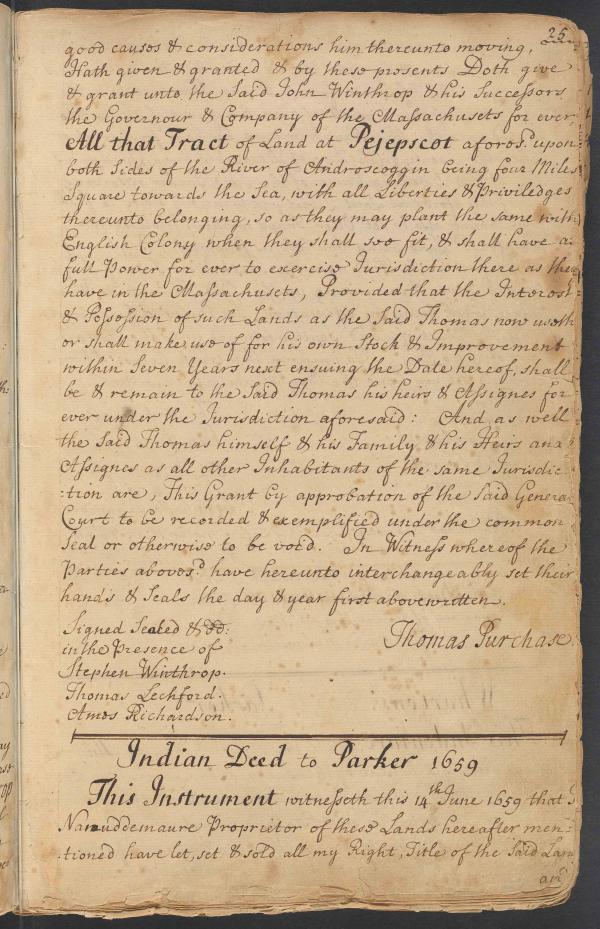 25
good causes & considerations him thereunto moving,
Hath given & granted & by these presents Doth give
& grant unto the Said John Winthrop & his Successors
the Governour & Company of the Massachusets for ever,
All that Tract of Land at Pejepscot afores.d upon
both Sides of the River of Androscoggin being four Miles
Square towards the Sea, with all Liberties & Priviledges
thereunto belonging, so as they may plant the same with
English Colony when they shall see fit, & shall have a:
full Power for ever to exercise Jurisdiction there as they
have in the Massachusets, Provided that the Interest
& Possession of such Lands as the Said Thomas now useth
or shall make use of for his own Stock & Improvement
within Seven Years next ensuing the Date hereof, shall
be & remain to the Said Thomas his heirs & Assignes for
ever under the Jurisdiction aforesaid: And as well
the Said Thomas himself & his Family, & his Heirs and
Assignes as all other Inhabitants of the same Jurisdic=
:tion are, This Grant by approbation of the Said General
Court to be recorded & exemplified under the common
Seal or otherwise to be void. In Witness whereof the
Parties aboves.d have hereunto interchangeably set their
hands & Seals the day & year first above written.
Signed Sealed & DD:
in the Presence of
Thomas Purchase.
Stephen Winthrop.
Thomas Lechford.
Amos Richardson.
Indian Deed to Parker 1659
This Instrument witnesseth this 14th June 1659 that I
Namuddemaure Proprietor of these Lands hereafter men=
:tioned have let, set & sold all my Right, Title of the Said Land